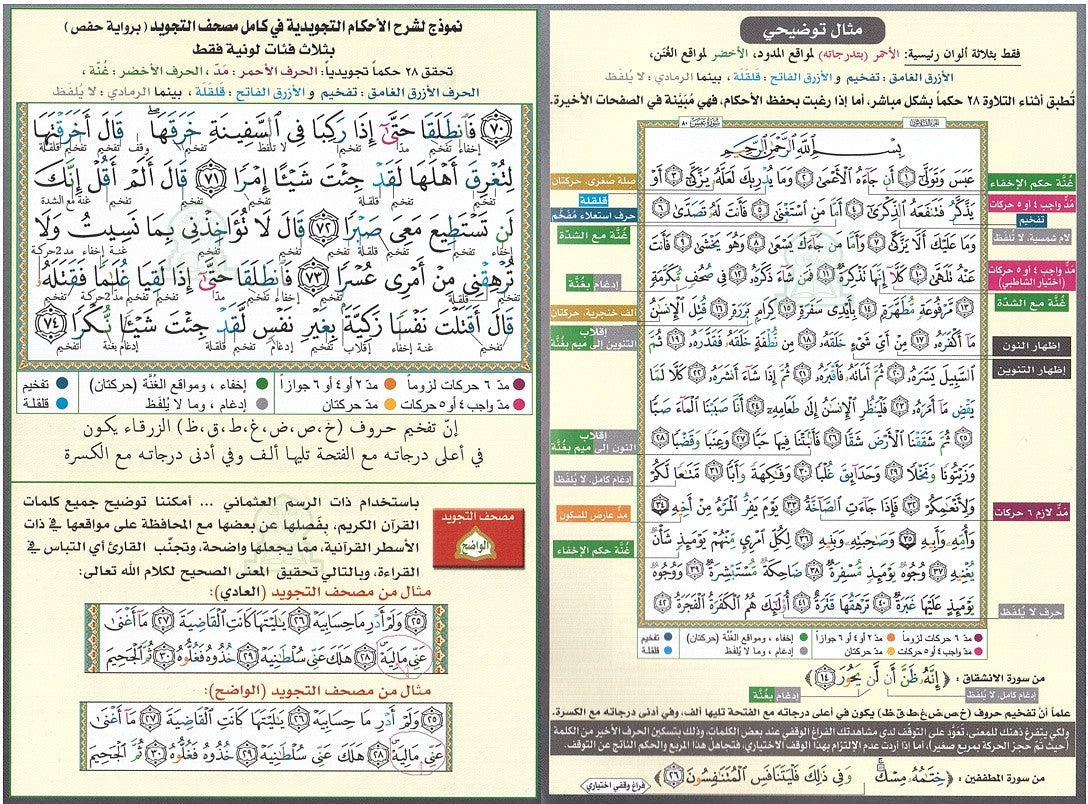 مثال توضيحي
فقط بثلاثة ألوان رئيسية: الأحمر (بتدرجاته) لمواقع المدود، الأخضر لمواقع الغُنَن،
الأزرق الغامق: تفخيم و الأزرق الفاتح: قلقلة، بينما الرمادي: لا يُلفَظ
تُطبق أثناء التلاوة ٢٨ حكماً بشكل مباشر، أما إذا رغبت بحفظ الأحكام، فهي مُبَيّنة في الصفحات الأخيرة.
سورة عبس ٨٠
بِسْمِ اللَّهِ الرَّحْمَنِ الرَّحِيمِ
عَبَسَ وَتَوَلَّىٰٓ ١ أَن جَآءَهُ ٱلْأَعْمَىٰ ٢ وَمَا يُدْرِيكَ لَعَلَّهُۥ يَزَّكَّىٰٓ ٣ أَوْ
يَذَّكَّرُ فَتَنفَعَهُ ٱلذِّكْرَىٰٓ ٤ أَمَّا مَنِ ٱسْتَغْنَىٰ ٥ فَأَنتَ لَهُۥ تَصَدَّىٰ ٦
وَمَا عَلَيْكَ أَلَّا يَزَّكَّىٰ ٧ وَأَمَّا مَن جَآءَكَ يَسْعَىٰ ٨ وَهُوَ يَخْشَىٰ ٩ فَأَنتَ
عَنْهُ تَلَهَّىٰ ١٠ كَلَّآ إِنَّهَا تَذْكِرَةٌ ١١ فَمَن شَآءَ ذَكَرَهُۥ ١٢ فِى صُحُفٍ مُّكَرَّمَةٍ
١٣ مَّرْفُوعَةٍ مُّطَهَّرَةٍۭ ١٤ بِأَيْدِى سَفَرَةٍ ١٥ كِرَامٍۭ بَرَرَةٍ ١٦ قُتِلَ ٱلْإِنسَٰنُ
مَآ أَكْفَرَهُۥ ١٧ مِنْ أَىِّ شَىْءٍ خَلَقَهُۥ ١٨ مِن نُّطْفَةٍ خَلَقَهُۥ فَقَدَّرَهُۥ ١٩ ثُمَّ
ٱلسَّبِيلَ يَسَّرَهُۥ ٢٠ ثُمَّ أَمَاتَهُۥ فَأَقْبَرَهُۥ ٢١ ثُمَّ إِذَا شَآءَ أَنشَرَهُۥ ٢٢ كَلَّا لَمَّا
يَقْضِ مَآ أَمَرَهُۥ ٢٣ فَلْيَنظُرِ ٱلْإِنسَٰنُ إِلَىٰ طَعَامِهِۦٓ ٢٤ أَنَّا صَبَبْنَا ٱلْمَآءَ صَبًّا
٢٥ ثُمَّ شَقَقْنَا ٱلْأَرْضَ شَقًّا ٢٦ فَأَنۢبَتْنَا فِيهَا حَبًّا ٢٧ وَعِنَبًا وَقَضْبًا ٢٨
وَزَيْتُونًا وَنَخْلًا ٢٩ وَحَدَآئِقَ غُلْبًا ٣٠ وَفَٰكِهَةً وَأَبًّا ٣١ مَّتَٰعًا لَّكُمْ
وَلِأَنْعَٰمِكُمْ ٣٢ فَإِذَا جَآءَتِ ٱلصَّآخَّةُ ٣٣ يَوْمَ يَفِرُّ ٱلْمَرْءُ مِنْ أَخِيهِ ٣٤
وَأُمِّهِۦ وَأَبِيهِ ٣٥ وَصَٰحِبَتِهِۦ وَبَنِيهِ ٣٦ لِكُلِّ ٱمْرِئٍ مِّنْهُمْ يَوْمَئِذٍ شَأْنٌ
يُغْنِيهِ ٣٧ وُجُوهٌ يَوْمَئِذٍ مُّسْفِرَةٌ ٣٨ ضَاحِكَةٌ مُّسْتَبْشِرَةٌ ٣٩ وَوُجُوهٌ
يَوْمَئِذٍ عَلَيْهَا غَبَرَةٌ ٤٠ تَرْهَقُهَا قَتَرَةٌ ٤١ أُو۟لَٰٓئِكَ هُمُ ٱلْكَفَرَةُ ٱلْفَجَرَةُ ٤٢
غُنَّة حكم الإخفاء
مَدّ واجب ٤ او ٥ حركات
تفخيم
لام شمسية: لا تُلفَظ
مَدّ واجب ٤ او ٥ حركات
(اختيار الشاطبي)
غُنَّة مع الشدّة
إظهار النون
إظهار التنوين
مَدّ لازم ٦ حركات
حرف لا يُلفَظ
صلة صغرى، حركتان
قلقلة
حرف استعلاء مُفَخَّم
غُنَّة مع الشدّة
إدغام بغُنَّة
ألف خنجرية، حركتان
إقلاب
التنوين إلى ميم بغُنَّة
إقلاب
النون إلى ميم بغُنَّة
إدغام كامل، لا يُلفَظ
مدّ عارض للسكون
غُنَّة حكم الإخفاء
مدّ ٦ حركات لزوماً مدّ ٢ أو ٤ أو ٦ جوازاً إخفاء، ومواقع الغُنَّة (حركتان) تفخيم
مدّ واجب ٤ أو ٥ حركات مدّ حركتان إدغام، وما لا يُلفَظ قلقلة
من سورة الانشقاق: ﴿إِنَّهُۥ ظَنَّ أَن لَّن يَحُورَ ١٤﴾
إدغام كامل، لا يُلفَظ إدغام بغُنَّة
علماً أنّ تفخيم حروف (خ،ص،ض،غ،ط،ق،ظ) يكون في أعلى درجاته مع الفتحة تليها ألف، وفي أدنى درجاته مع الكسرة.
ولكي يتفرغ ذهنك للمعنى، تَعَوَّد على التوقف لدى مشاهدتك الفراغ الوقفي عند بعض الكلمات، وذلك بتسكين الحرف الأخير من الكلمة
(حيث تمّ حجز الحركة بمربع صغير)، أما إذا أردت عدم الإلتزام بهذا الوقف الاختياري، فتجاهل هذا المربع والحكم الناتج عن التوقف.
من سورة المطففين: ﴿خِتَٰمُهُۥ مِسْكٌ وَفِى ذَٰلِكَ فَلْيَتَنَافَسِ ٱلْمُتَنَٰفِسُونَ ٢٦﴾
فراغ وقفي اختياري
نموذج لشرح الأحكام التجويدية في كامل مصحف التجويد (برواية حفص)
بثلاث فئات لونية فقط
تحقق ٢٨ حكماً تجويدياً: الحرف الأحمر: مَدّ، الحرف الأخضر: غُنَّة،
الحرف الأزرق الغامق: تفخيم و الأزرق الفاتح: قلقلة، بينما الرمادي: لا يُلفَظ
٧٠ فَٱنطَلَقَا حَتَّىٰٓ إِذَا رَكِبَا فِى ٱلسَّفِينَةِ خَرَقَهَا ۖ قَالَ أَخَرَقْتَهَا
إخفاء تفخيم مدّ تفخيم لا تلفظ تفخيم وقف تفخيم تفخيم قلقلة
لِتُغْرِقَ أَهْلَهَا لَقَدْ جِئْتَ شَيْـًٔا إِمْرًا ٧١ قَالَ أَلَمْ أَقُلْ إِنَّكَ
تفخيم قلقلة تفخيم تفخيم تفخيم غنة مع الشدة
لَن تَسْتَطِيعَ مَعِىَ صَبْرًا ٧٢ قَالَ لَا تُؤَاخِذْنِى بِمَا نَسِيتُ وَلَا
غنة إخفاء تفخيم تفخيم تفخيم مد2حركة
تُرْهِقْنِى مِنْ أَمْرِى عُسْرًا ٧٣ فَٱنطَلَقَا حَتَّىٰٓ إِذَا لَقِيَا غُلَٰمًا فَقَتَلَهُۥ
قلقلة تفخيم إخفاء تفخيم مدّ تفخيم تفخيم مد2حركة تفخيم
قَالَ أَقَتَلْتَ نَفْسًا زَكِيَّةًۢ بِغَيْرِ نَفْسٍ لَّقَدْ جِئْتَ شَيْـًٔا نُّكْرًا ٧٤
تفخيم تفخيم غنة إخفاء إقلاب تفخيم إدغام قلقلة إدغام بغنة تفخيم
مدّ ٦ حركات لزوماً مدّ ٢ أو ٤ أو ٦ جوازاً إخفاء، ومواقع الغُنَّة (حركتان) تفخيم
مدّ واجب ٤ أو ٥ حركات مدّ حركتان إدغام، وما لا يُلفَظ قلقلة
إنّ تفخيم حروف (خ،ص،ض،غ،ط،ق،ظ) الزرقاء يكون
في أعلى درجاته مع الفتحة تليها ألف وفي أدنى درجاته مع الكسرة
مصحف التجويد
الواضح
باستخدام ذات الرسم العثماني ... أمكننا توضيح جميع كلمات
القرآن الكريم، بفَصلها عن بعضها مع المحافظة على مواقعها في ذات
الأسطر القرآنية، ممّا يجعلها واضحة، وتجنّب القارئ أي التباس في
القراءة، وبالتالي تحقيق المعنى الصحيح لكلام الله تعالى:
مثال من مصحف التجويد (العادي):
٢٥ وَلَمْ أَدْرِ مَا حِسَابِيَهْ ٢٦ يَٰلَيْتَهَا كَانَتِ ٱلْقَاضِيَةَ ٢٧ مَآ أَغْنَىٰ
عَنِّى مَالِيَهْ ٢٨ هَلَكَ عَنِّى سُلْطَٰنِيَهْ ٢٩ خُذُوهُ فَغُلُّوهُ ٣٠ ثُمَّ ٱلْجَحِيمَ
مثال من مصحف التجويد (الواضح):
٢٥ وَلَمْ أَدْرِ مَا حِسَابِيَهْ ٢٦ يَٰلَيْتَهَا كَانَتِ ٱلْقَاضِيَةَ ٢٧ مَآ أَغْنَىٰ
عَنِّى مَالِيَهْ ٢٨ هَلَكَ عَنِّى سُلْطَٰنِيَهْ ٢٩ خُذُوهُ فَغُلُّوهُ ٣٠ ثُمَّ ٱلْجَحِيمَ